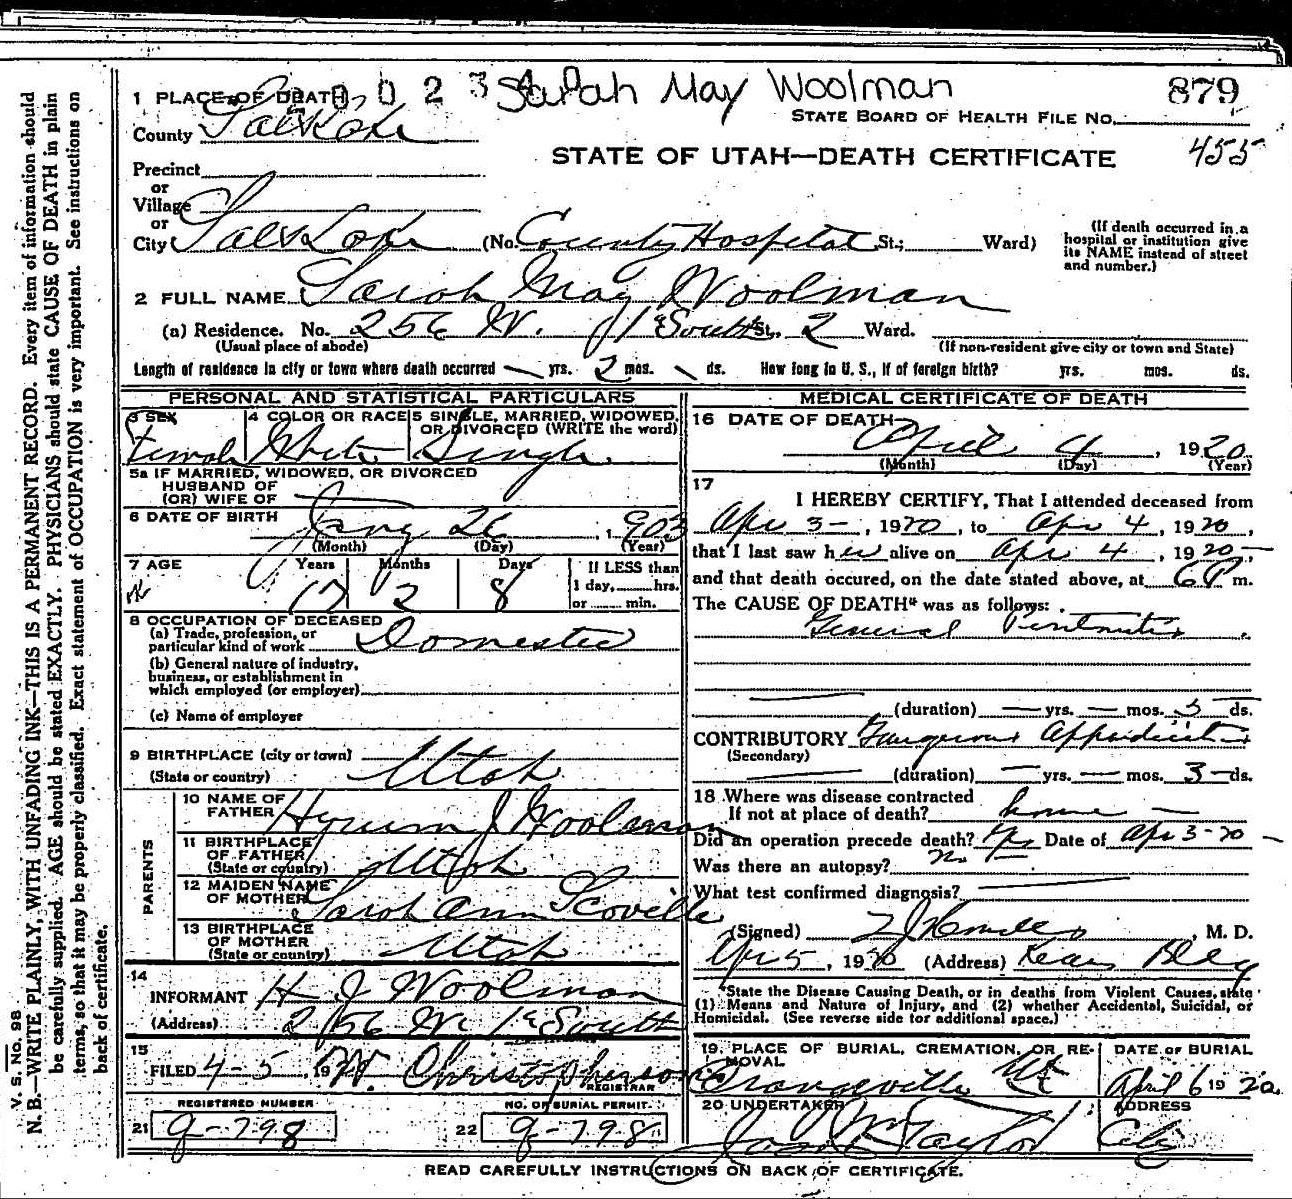 Sarah May Woolman
879
1 PLACE OF DEATH 0 0 2 3
STATE BOARD OF HEALTH FILE NO.
County Salt Lake
455
STATE OF UTAH—DEATH CERTIFICATE
Precinct
or
Village
or
City Salt Lake (No. County Hospital St.; Ward)
(If death occurred in a hospital or institution give its NAME instead of street and number.)
2 FULL NAME Sarah May Woolman
(a) Residence. No. 256 W. 1st South St., 2 Ward.
(Usual place of abode) (If non-resident give city or town and State)
Length of residence in city or town where death occurred — yrs. 2 mos. ds. How long in U. S., if of foreign birth? yrs. mos. ds.
PERSONAL AND STATISTICAL PARTICULARS
3 SEX 4 COLOR OR RACE 5 SINGLE, MARRIED, WIDOWED, OR DIVORCED (WRITE the word)
Female White Single
5a IF MARRIED, WIDOWED, OR DIVORCED
HUSBAND OF
(OR) WIFE OF —
6 DATE OF BIRTH Jany 26, 1903
(Month) (Day) (Year)
7 AGE Years Months Days If LESS than
1 day, hrs.
17 2 8 or min.
8 OCCUPATION OF DECEASED
(a) Trade, profession, or
particular kind of work Domestic
(b) General nature of industry,
business, or establishment in
which employed (or employer)
(c) Name of employer
9 BIRTHPLACE (city or town)
(State or country) Utah
PARENTS
10 NAME OF
FATHER Hyrum J Woolman
11 BIRTHPLACE
OF FATHER
(State or country) Utah
12 MAIDEN NAME
OF MOTHER Sarah Ann Scoville
13 BIRTHPLACE
OF MOTHER
(State or country) Utah
14
INFORMANT H J Woolman
(Address) 256 W 1st South
15
FILED 4-5, 19 W. Christopherson
REGISTRAR
REGISTERED NUMBER NO. OF BURIAL PERMIT.
21 9-798 22 9-798
MEDICAL CERTIFICATE OF DEATH
16 DATE OF DEATH
April 4, 1920
(Month) (Day) (Year)
17
I HEREBY CERTIFY, That I attended deceased from
Apr 3-, 1920, to Apr 4, 1920,
that I last saw her alive on Apr 4, 1920
and that death occured, on the date stated above, at 6 P m.
The CAUSE OF DEATH* was as follows:
General Peritonitis
(duration) — yrs. — mos. 3 ds.
CONTRIBUTORY Gangrenous Appendicitis
(Secondary)
(duration) — yrs. — mos. 3 — ds.
18 Where was disease contracted
If not at place of death? home —
Did an operation precede death? Yes Date of Apr 3-20
Was there an autopsy? No
What test confirmed diagnosis? —
(Signed) M. D.
Apr 5, 1920 (Address) Kearns Bldg
*State the Disease Causing Death, or in deaths from Violent Causes, state
(1) Means and Nature of Injury, and (2) whether Accidental, Suicidal, or
Homicidal. (See reverse side for additional space.)
19 PLACE OF BURIAL, CREMATION, OR RE-
MOVAL
Orangeville Ut
DATE OF BURIAL
April 6 1920
20 UNDERTAKER
Taylor
ADDRESS
City
READ CAREFULLY INSTRUCTIONS ON BACK OF CERTIFICATE.
V. S. No. 98
N. B.—WRITE PLAINLY, WITH UNFADING INK—THIS IS A PERMANENT RECORD. Every item of information should
be carefully supplied. AGE should be stated EXACTLY. PHYSICIANS should state CAUSE OF DEATH in plain
terms, so that it may be properly classified. Exact statement of OCCUPATION is very important. See instructions on
back of certificate.